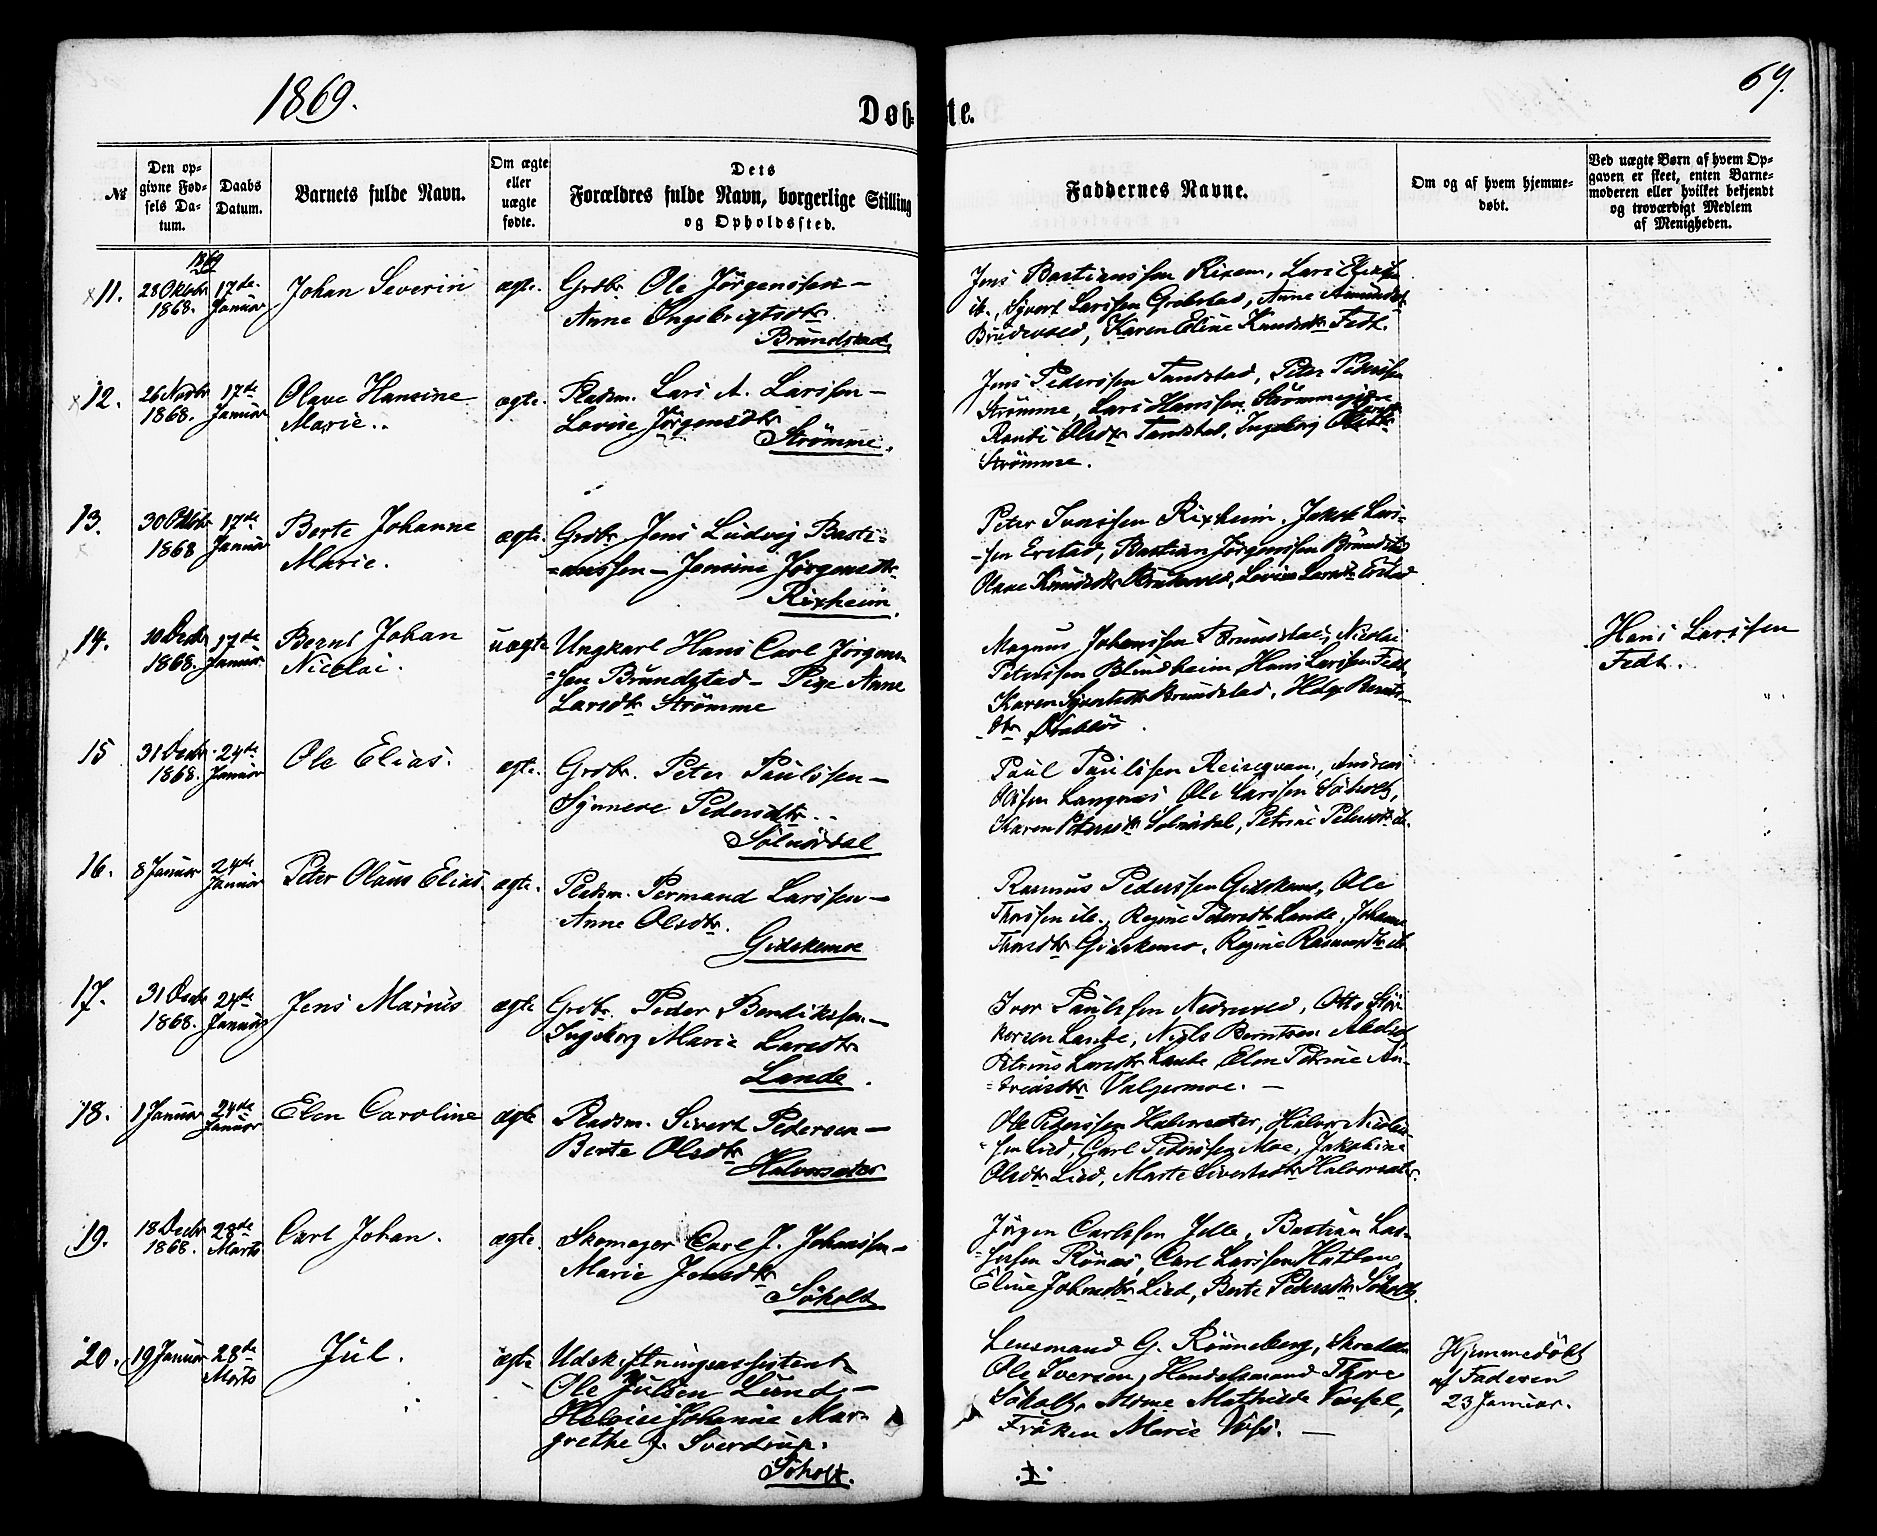 1869.
Døb- te.
69.
№
Den opgivne Fødsels Datum.
Daabs Datum.
Barnets fulde Navn.
Om ægte eller uægte fødte.
Dets Forældres fulde Navn, borgerlige Stilling og Opholdssted.
Faddernes Navne.
Om og af hvem hjemmedøbt.
Ved uægte Børn af hvem Opgaven er skeet, enten Barnemoderen eller hvilket bekjendt og troværdigt Medlem af Menigheden.
1869
11. 28 Oktobr 1868. 17de Januar Johan Severin ægte. Grdbr. Ole Jørgenssen –
Anne Ingebrigtsdtr.
Brundstad
Jens Bastianssen Rixem, Lars
ib., Syvert Larssen Grebstad, Anne
Brudevold, Karen Eline Knudsdtr Fedt.
12. 26 Novbr 1868. 17de Januar Olave Hansine
Marie.. ægte. Pladsm. Lars A. Larssen –
Lovise Jørgensdtr
Strømme.
Jens Pederssen Tandstad, Peter Pederssen
Strømme, Lars Hanssen Strømme
Randi Olsdtr Tandstad, Ingeborg Olsdtr
Strømme.
13. 30 Oktobr 1868 17de Januar Berte Johanne
Marie. ægte. Grdbr. Jens Ludvig Basti-
anssen – Jensine Jørgensdtr
Rixheim.
Peter Ivarssen Rixheim. Jakob Lars-
sen Erstad, Bastian Jørgenssen Brundstad
Olave Knudsdtr Brudevold, Lovise Larsdtr Erstad
14. 30 Decbr 1868. 17de Januar Bernt Johan
Nicolai. uægte Ungkarl Hans Carl Jørgens-
sen Brundstad – Pige Anne
Larsdtr Strømme
Magnus Johanssen Brundstad, Nicolai
Peterssen Blindheim Hans Larssen Fedt,
Karen Syvertsdtr Brundstad, Helge Bernts-
dtr Drabløs.
Hans Larssen
Fedt.
15 31 Decbr 1868. 24de Januar Ole Elias. ægte. Grdbr. Peter Paulssen –
Synneve Pedersdtr..
Solnørdal
Paul Paulssen Reiseqvam, Andreas
Olssen Langnæs, Ole Larssen Søholt,
Karen Petersdtr Solnørdal, Petrine Petersdtr ib.
16. 8 Januar 24de Januar Peter Olaus Elias. ægte. Pladsm. Permand Larssen –
Anne Olsdtr.
Gidskemoe
Rasmus Pederssen Gidskemo, Ole
Thorssen ib., Regine Pedersdtr Lande, Johanne
Thorsdtr Gidskemo, Regine Rasmusdtr ib
17. 31 Decbr 1868. 24de Januar Jens Marius ægte Grdbr. Peder Bendikssen –
Ingeborg Marie Larsdtr
Lande.
Ivar Paulssen Nedrevold, Otto Stør-
kersen Lande, Niels Berntsen
Petrine Larsdtr Lande, Elen Petrine An-
dreasdtr Valgermoe. –
18. 1 Januar 24de Januar Elen Caroline ægte Pladsm. Sivert Pedersen –
Berte Olsdtr
Halvorsæter
Ole Pederssen Halvorsæter, Halvor Nicolai-
sen Lied, Carl Pederssen Moe, Jakobine
Olsdtr Lied, Marte Sivertsdtr Halvorsæter.
19. 18 Decbr 1868. 28de Marts Carl Johan. ægte. Skomager Carl J. Johanssen –
Marie Jensdtr
Søholt
Jørgen Carlssen Jelle, Bastian Las-
sessen Rønæs, Carl Larssen Hatlene
Eline Johnsdtr Lied, Berte Pedersdtr Søholt.
20. 19 Januar 28de Marts Jul. ægte Udskiftningsassistent
Ole Julsen Lund –
Heloise Johanne Mar-
grethe f. Sverdrup.
Søholt.
Lensmand G. Rønneberg, Skredder
Ole Iversen, Handelsmand Thore
Søholt, Mdme Mathilde
Frøken Marie Voss. –
Hjemmedøbt
af Faderen
23 Januar.